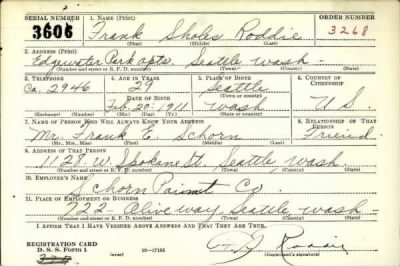 SERIAL NUMBER 1. NAME (Print) ORDER NUMBER
3606 Frank Sholes Roddie 3268
(First) (Middle) (Last)
2. ADDRESS (Print)
Edgewater Park apts. Seattle, wash -
(Number and street or R. F. D. number) (Town) (County) (State)
3. TELEPHONE 4. AGE IN YEARS 5. PLACE OF BIRTH 6. COUNTRY OF CITIZENSHIP
Ca. 2946 29 Seattle
DATE OF BIRTH (Town or county)
Feb. 20. 1911 wash U.S.
(Exchange) (Number) (Mo.) (Day) (Yr.) (State or country)
7. NAME OF PERSON WHO WILL ALWAYS KNOW YOUR ADDRESS 8. RELATIONSHIP OF THAT PERSON
Mr. Frank E. Schorn Friend.
(Mr., Mrs., Miss) (First) (Middle) (Last)
9. ADDRESS OF THAT PERSON
1128. W. Spokane St. Seattle, Wash.
(Number and street or R. F. D. number) (Town) (County) (State)
10. EMPLOYER'S NAME
Schorn Paint Co.
11. PLACE OF EMPLOYMENT OR BUSINESS
722 - Olive way, Seattle, wash -
(Number and street or R. F. D. number) (Town) (County) (State)
I AFFIRM THAT I HAVE VERIFIED ABOVE ANSWERS AND THAT THEY ARE TRUE.
REGISTRATION CARD
D. S. S. Form 1 16-17105 Roddie
(over) (Registrant's signature)